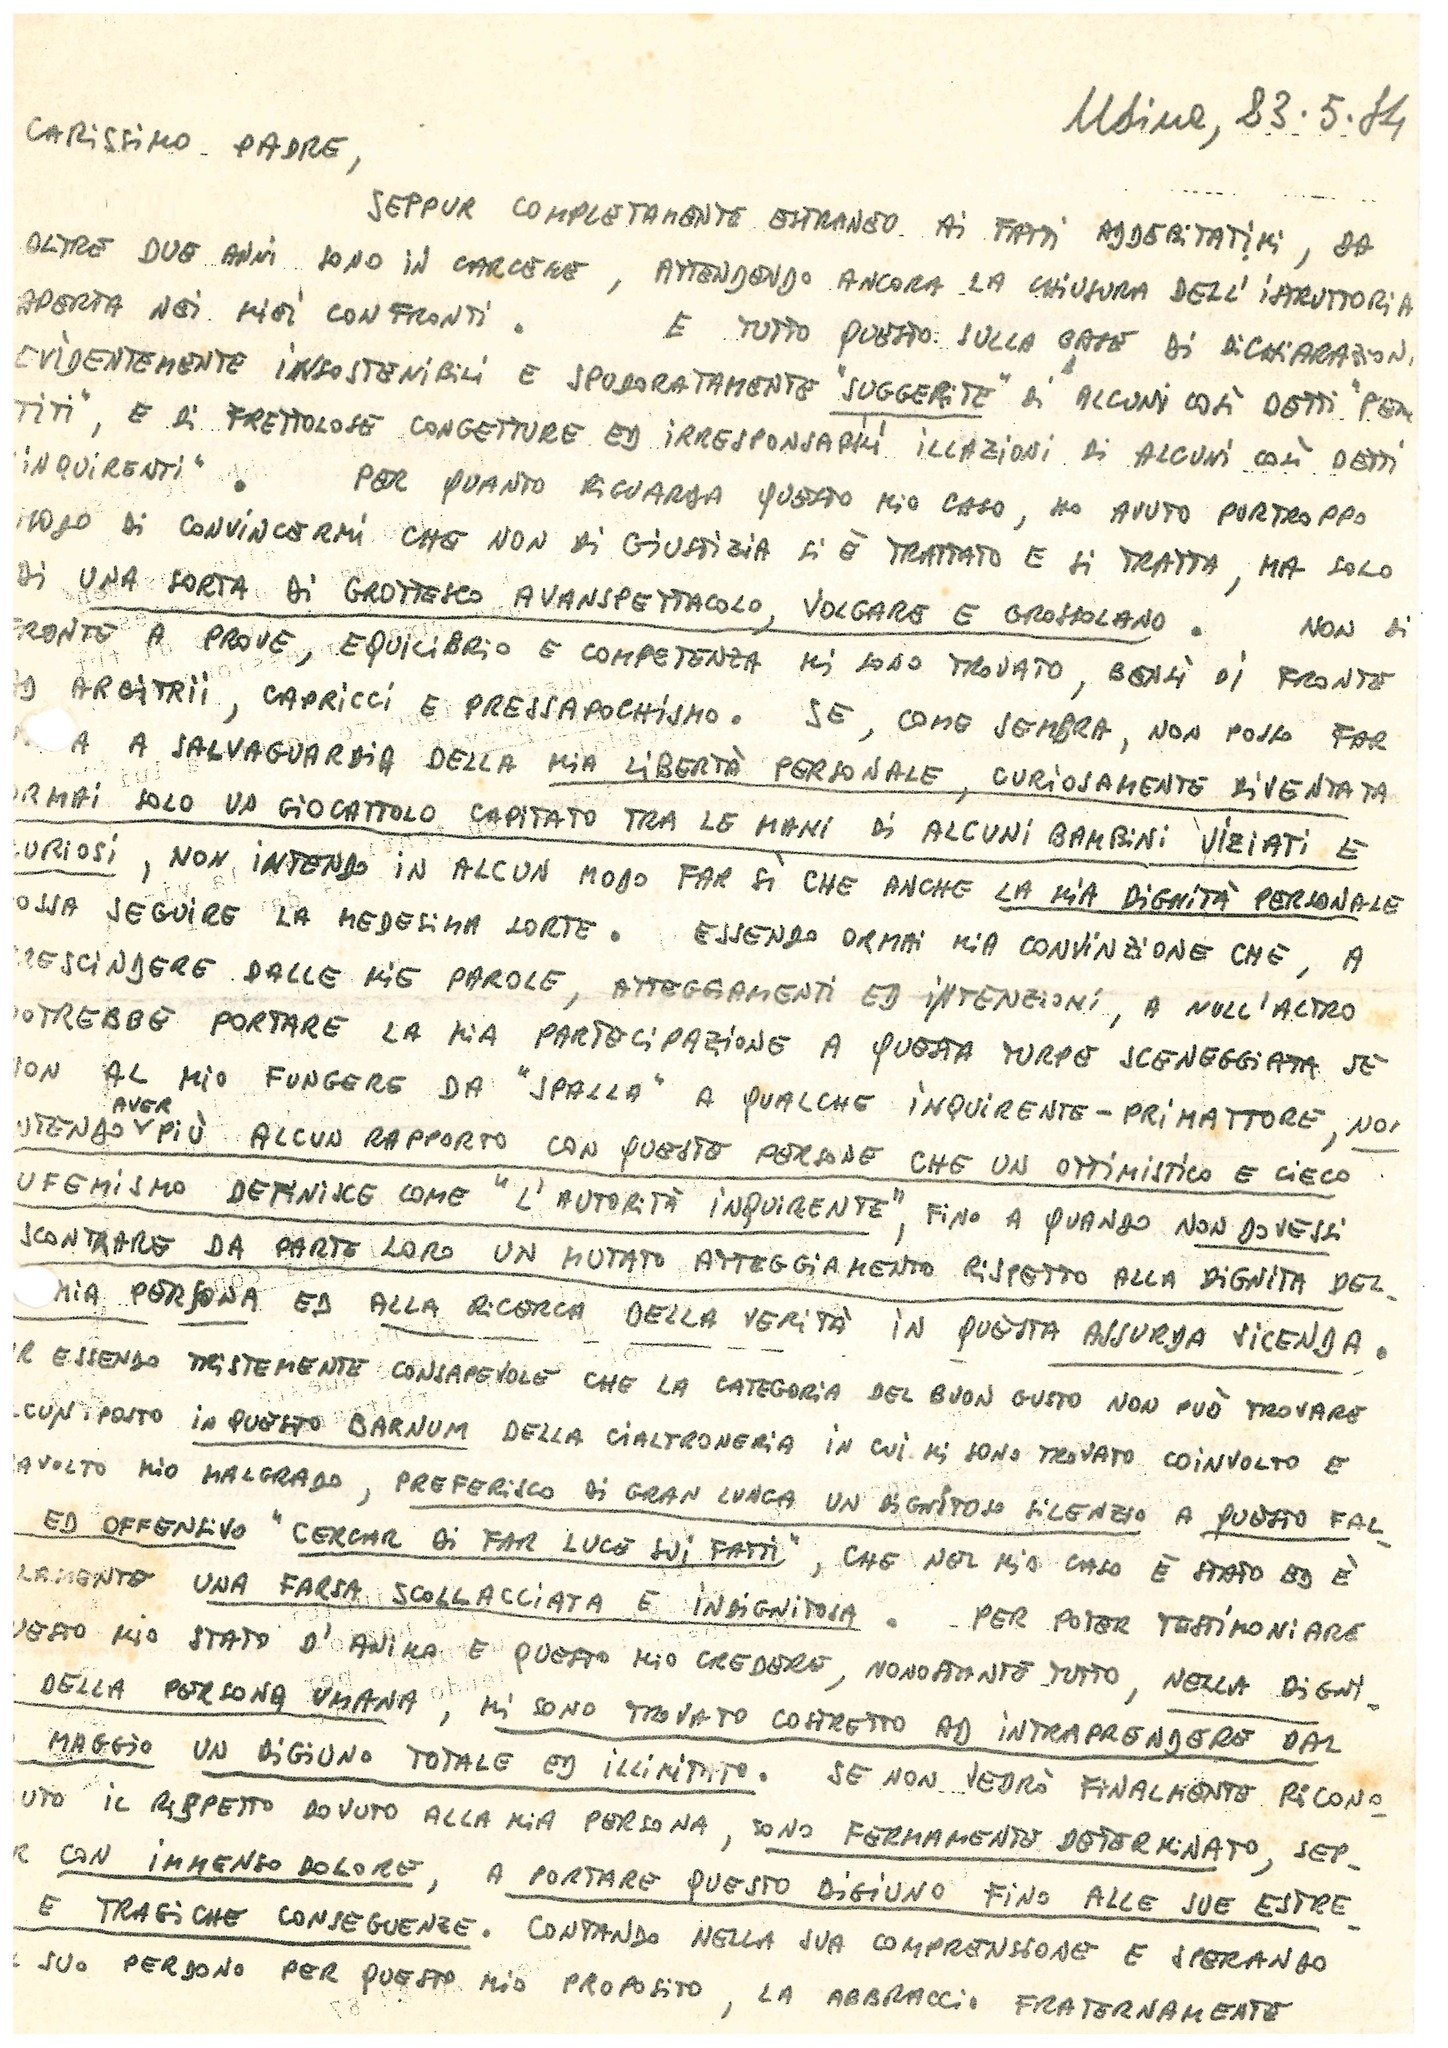 Udine, 23.5.84
CARISSIMO PADRE,
SEPPUR COMPLETAMENTE ESTRANEO AI FATTI ADDEBITATIMI, DA
OLTRE DUE ANNI SONO IN CARCERE, ATTENDENDO ANCORA LA CHIUSURA DELL'ISTRUTTORIA
APERTA NEI MIEI CONFRONTI. E TUTTO QUESTO SULLA BASE DI DICHIARAZION
EVIDENTEMENTE INSOSTENIBILI E SPUDORATAMENTE "SUGGERITE" DI ALCUNI COSÌ DETTI "PEN
TITI", E DI FRETTOLOSE CONGETTURE ED IRRESPONSABILI ILLAZIONI DI ALCUNI COSÌ DETTI
INQUIRENTI". PER QUANTO RIGUARDA QUESTO MIO CASO, HO AVUTO PURTROPPO
MODO DI CONVINCERMI CHE NON DI GIUSTIZIA SI È TRATTATO E SI TRATTA, MA SOLO
DI UNA SORTA DI GROTTESCO AVANSPETTACOLO, VOLGARE E GROSSOLANO. NON DI
FRONTE A PROVE, EQUILIBRIO E COMPETENZA MI SONO TROVATO, BENSÌ DI FRONTE
AD ARBITRII, CAPRICCI E PRESSAPOCHISMO. SE, COME SEMBRA, NON POSSO FAR
A A SALVAGUARDIA DELLA MIA LIBERTÀ PERSONALE, CURIOSAMENTE DIVENTATA
ORMAI SOLO UN GIOCATTOLO CAPITATO TRA LE MANI DI ALCUNI BAMBINI VIZIATI E
CURIOSI, NON INTENDO IN ALCUN MODO FAR SÌ CHE ANCHE LA MIA DIGNITÀ PERSONALE
OSSA SEGUIRE LA MEDESIMA SORTE. ESSENDO ORMAI MIA CONVINZIONE CHE, A
RESCINDERE DALLE MIE PAROLE, ATTEGGIAMENTI ED INTENZIONI, A NULL'ALTRO
POTREBBE PORTARE LA MIA PARTECIPAZIONE A QUESTA TURPE SCENEGGIATA SE
NON AL MIO FUNGERE DA "SPALLA" A QUALCHE INQUIRENTE-PRIMATTORE, NON
NTENDO AVER PIÙ ALCUN RAPPORTO CON QUESTE PERSONE CHE UN OTTIMISTICO E CIECO
UFEMISMO DEFINISCE COME "L'AUTORITÀ INQUIRENTE", FINO A QUANDO NON DOVESSI
SCONTRARE DA PARTE LORO UN MUTATO ATTEGGIAMENTO RISPETTO ALLA DIGNITÀ DEL-
MIA PERSONA ED ALLA RICERCA DELLA VERITÀ IN QUESTA ASSURDA VICENDA.
R ESSENDO TRISTEMENTE CONSAPEVOLE CHE LA CATEGORIA DEL BUON GUSTO NON PUÒ TROVARE
LCUN POSTO IN QUESTO BARNUM DELLA CIALTRONERIA IN CUI MI SONO TROVATO COINVOLTO E
RAVOLTO MIO MALGRADO, PREFERISCO DI GRAN LUNGA UN DIGNITOSO SILENZIO A QUESTO FAL-
ED OFFENSIVO "CERCAR DI FAR LUCE SUI FATTI", CHE NEL MIO CASO È STATO ED È
LAMENTE UNA FARSA SCOLLACCIATA E INDIGNITOSA. PER POTER TESTIMONIARE
UESTO MIO STATO D'ANIMA E QUESTO MIO CREDERE, NONOSTANTE TUTTO, NELLA DIGNI-
DELLA PERSONA UMANA, MI SONO TROVATO COSTRETTO AD INTRAPRENDERE DAL
MAGGIO UN DIGIUNO TOTALE ED ILLIMITATO. SE NON VEDRÒ FINALMENTE RICONO-
UTO IL RISPETTO DOVUTO ALLA MIA PERSONA, SONO FERMAMENTE DETERMINATO, SEP-
R CON IMMENSO DOLORE, A PORTARE QUESTO DIGIUNO FINO ALLE SUE ESTRE-
E TRAGICHE CONSEGUENZE. CONTANDO NELLA SUA COMPRENSIONE E SPERANDO
L SUO PERDONO PER QUESTO MIO PROPOSITO, LA ABBRACCIO FRATERNAMENTE